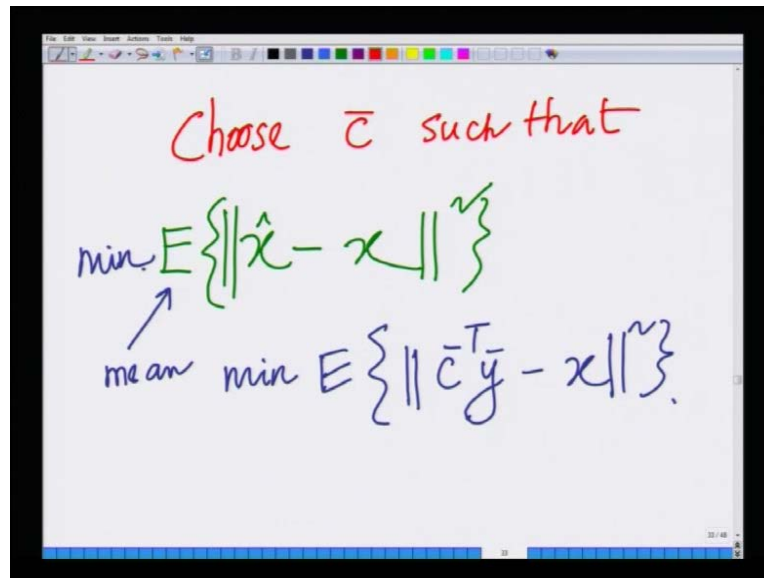 File Edit View Insert Actions Tools Help
Choose c̄ such that
min. E{||x̂ - x||²}
mean min E{||c̄ᵀȳ - x||²}.
33 / 48
33